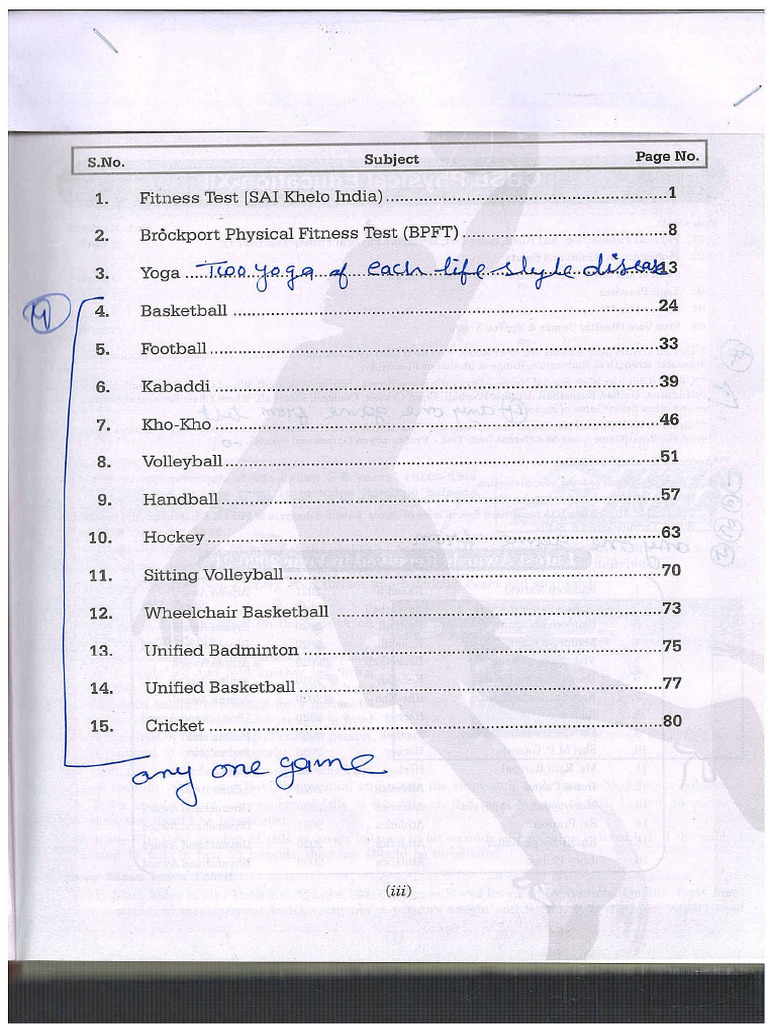 S.No. Subject Page No.
1. Fitness Test [SAI Khelo India) 1
2. Brockport Physical Fitness Test (BPFT) 8
3. Yoga Two yoga of each life style disease 13
4. Basketball 24
5. Football 33
6. Kabaddi 39
7. Kho-Kho 46
8. Volleyball 51
9. Handball 57
10. Hockey 63
11. Sitting Volleyball 70
12. Wheelchair Basketball 73
13. Unified Badminton 75
14. Unified Basketball 77
15. Cricket 80
any one game
(iii)